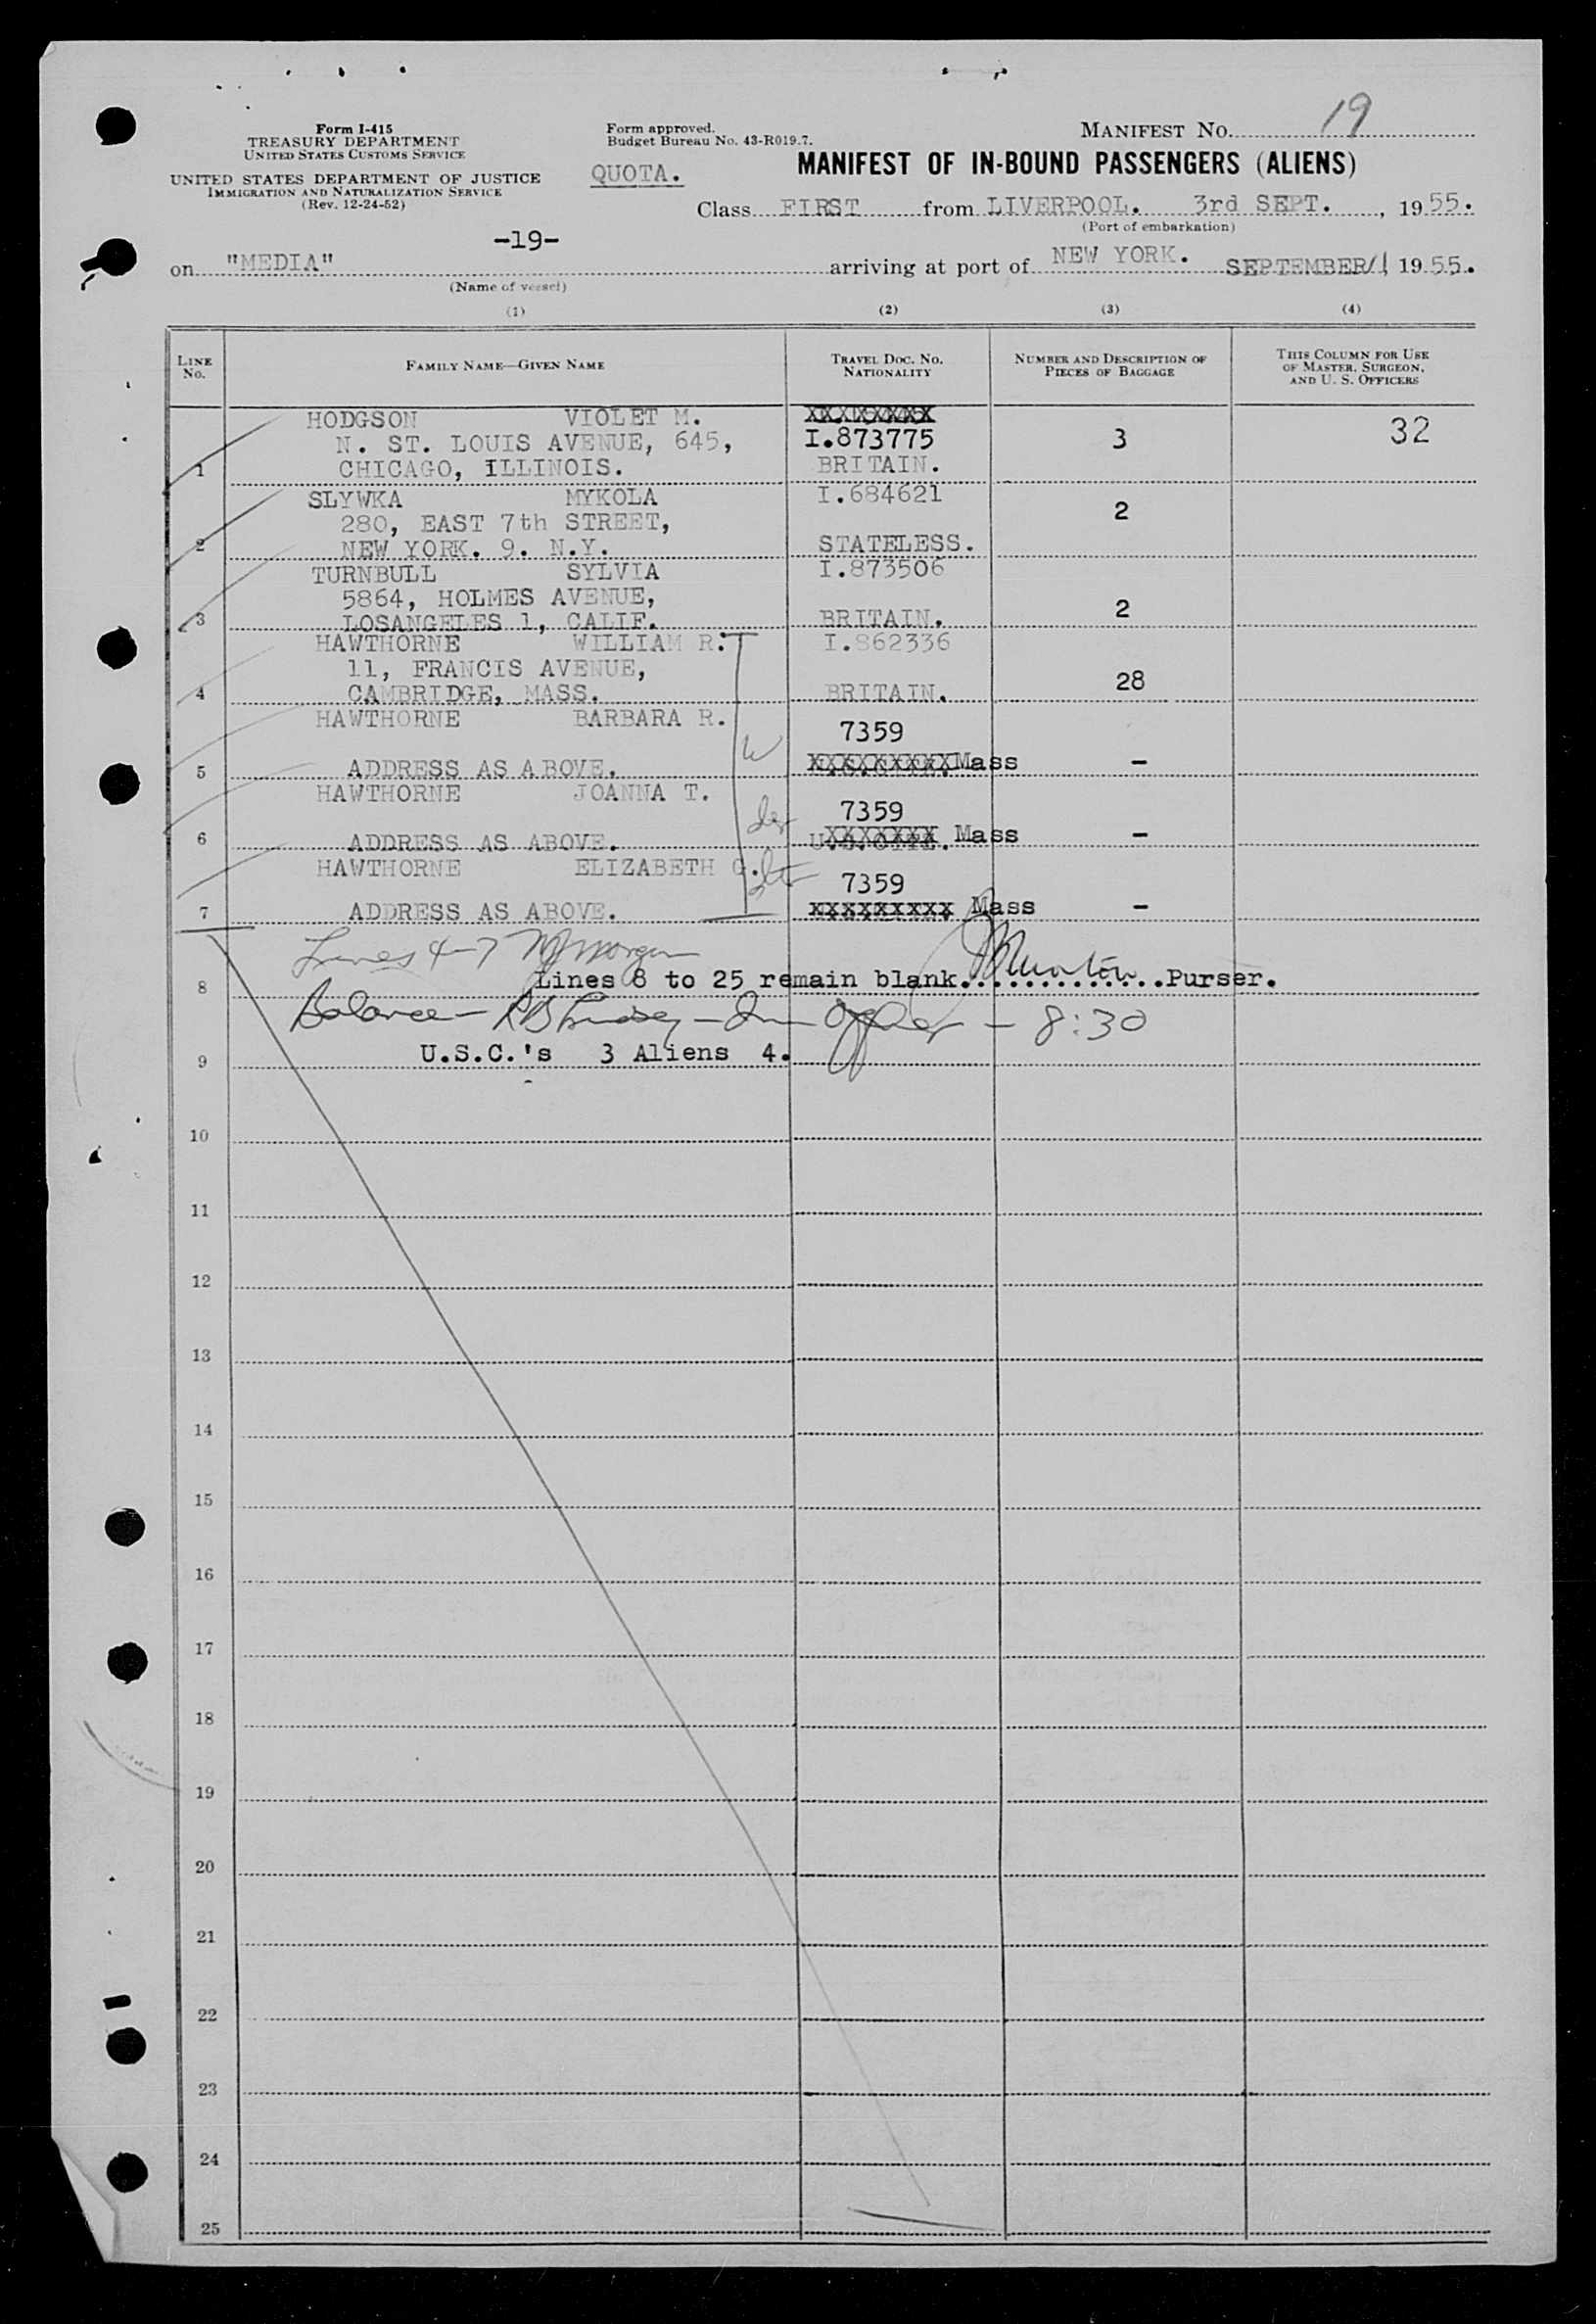 Form I-415
TREASURY DEPARTMENT
UNITED STATES CUSTOMS SERVICE
UNITED STATES DEPARTMENT OF JUSTICE
IMMIGRATION AND NATURALIZATION SERVICE
(Rev. 12-24-52)
Form approved.
Budget Bureau No. 43-R019.7.
QUOTA.
MANIFEST No. 19
MANIFEST OF IN-BOUND PASSENGERS (ALIENS)
Class FIRST from LIVERPOOL. 3rd SEPT., 1955.
(Port of embarkation)
-19-
on "MEDIA" arriving at port of NEW YORK. SEPTEMBER 11 1955.
(Name of vessel)
(1) (2) (3) (4)
LINE No. FAMILY NAME—GIVEN NAME TRAVEL DOC. No. NATIONALITY NUMBER AND DESCRIPTION OF PIECES OF BAGGAGE THIS COLUMN FOR USE OF MASTER, SURGEON, AND U. S. OFFICERS
HODGSON VIOLET M. XXXXXXXX
N. ST. LOUIS AVENUE, 645, I.873775 3 32
1 CHICAGO, ILLINOIS. BRITAIN.
SLYWKA MYKOLA I.684621
280, EAST 7th STREET, 2
2 NEW YORK. 9. N.Y. STATELESS.
TURNBULL SYLVIA I.873506
5864, HOLMES AVENUE,
3 LOSANGELES 1, CALIF. BRITAIN. 2
HAWTHORNE WILLIAM R. I.862336
11, FRANCIS AVENUE,
4 CAMBRIDGE, MASS. BRITAIN. 28
HAWTHORNE BARBARA R. 7359
W
5 ADDRESS AS ABOVE. XXXXXXXXX Mass -
HAWTHORNE JOANNA T. 7359
6 ADDRESS AS ABOVE. U.S.CITZ. Mass -
HAWTHORNE ELIZABETH G. 7359
7 ADDRESS AS ABOVE. XXXXXXXXX Mass -
Lines 4-7 Morgan
8 Lines 8 to 25 remain blank..............Purser.
Balance - - 8:30
9 U.S.C.'s 3 Aliens 4.
10
11
12
13
14
15
16
17
18
19
20
21
22
23
24
25